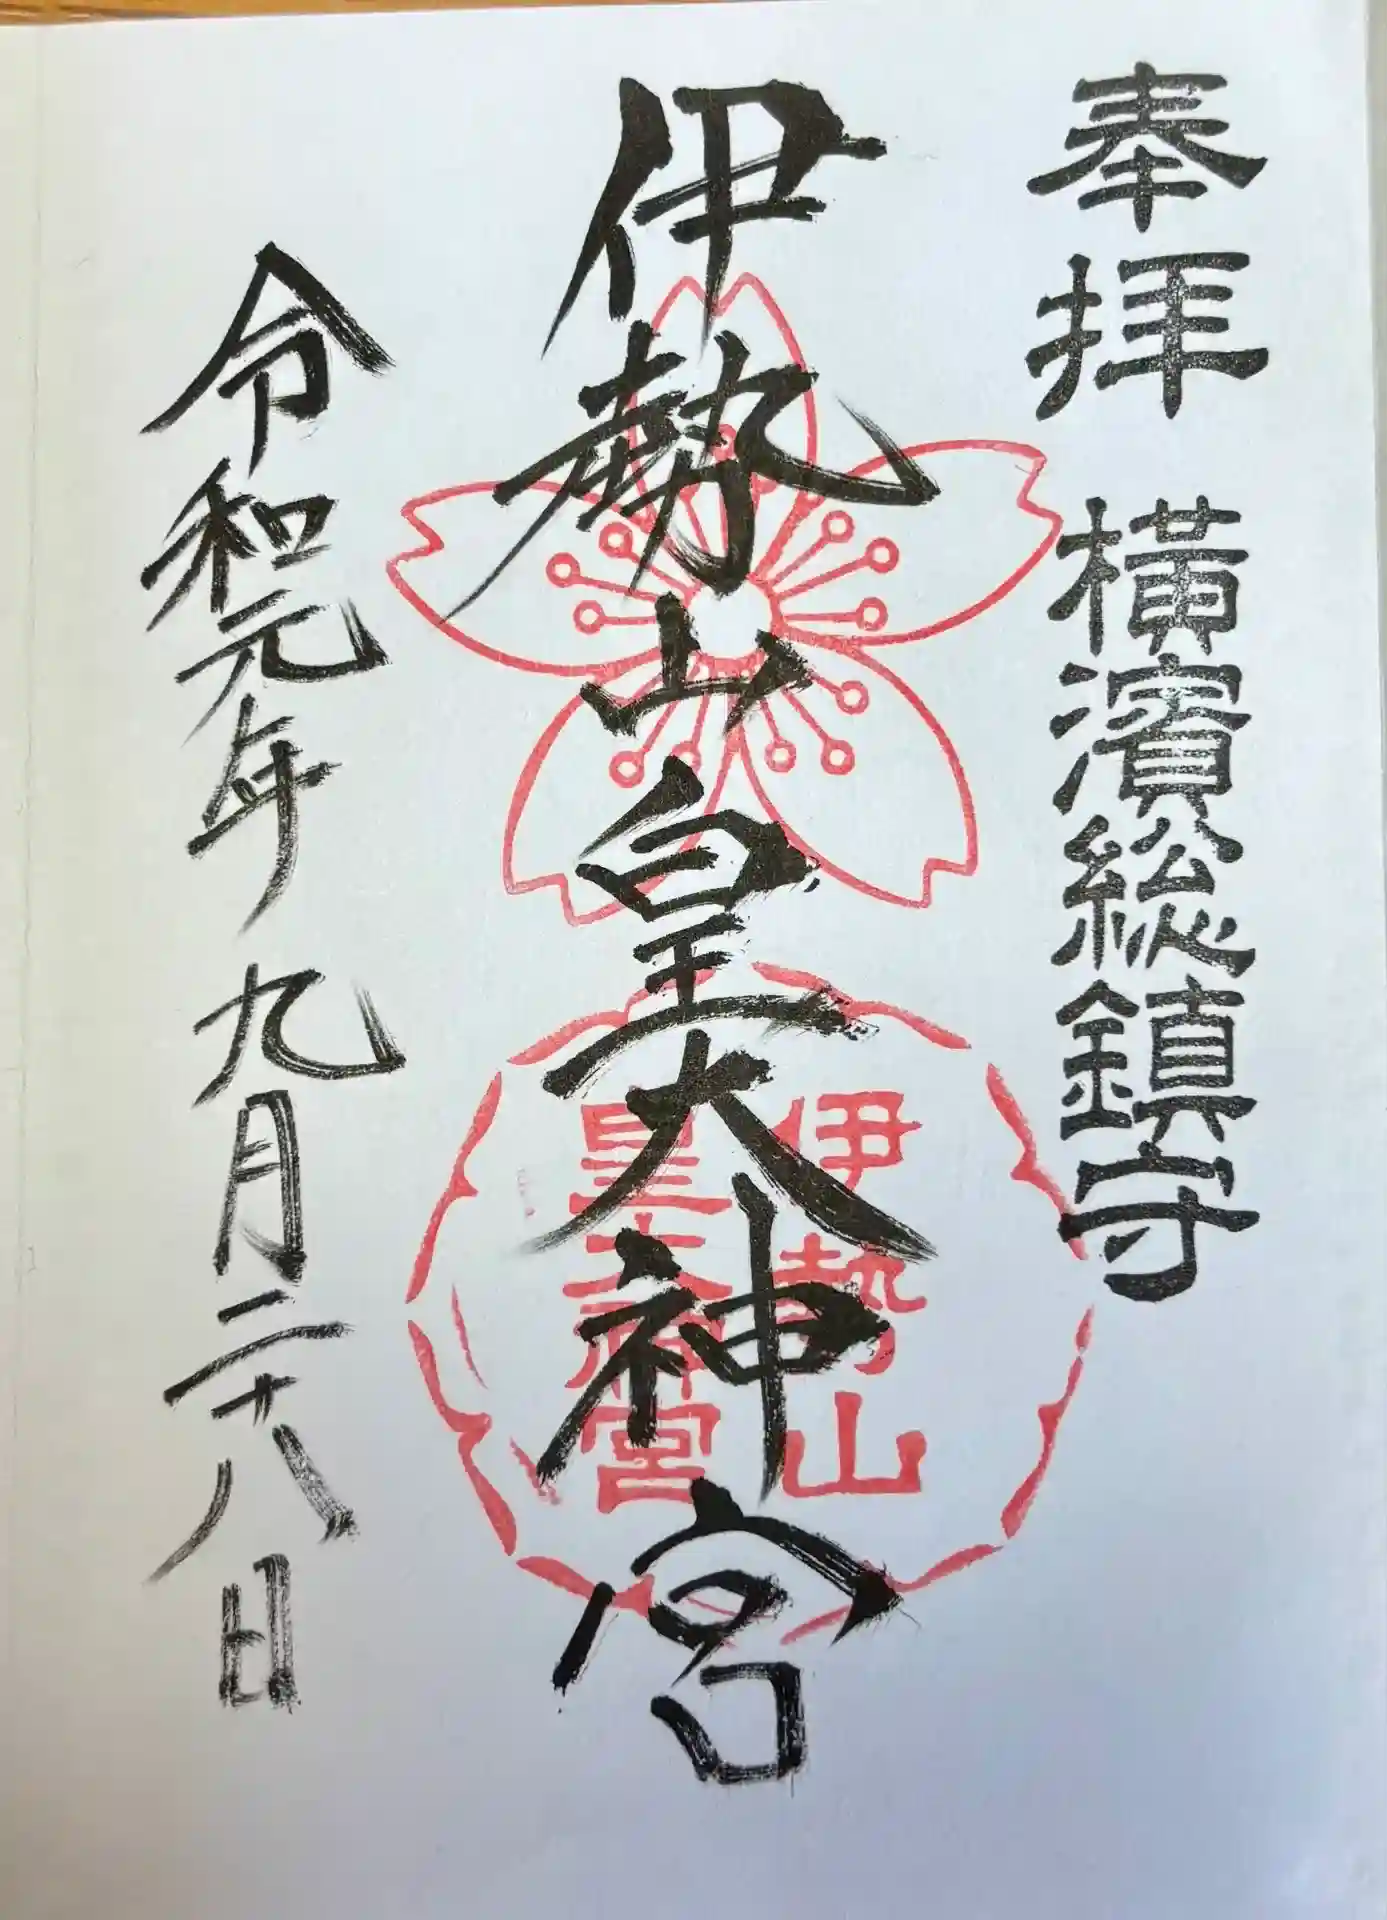 奉拝 横濱総鎮守
伊勢山皇大神宮
伊勢山
皇大神宮
令和元年九月二十八日